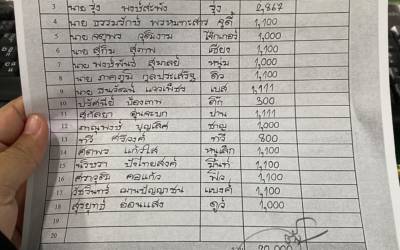 3 นาย รุ่ง พงษ์สะพัง รุ่ง 2,867
4 นาย ธรรมรักษ์ อุดี้ 1,100
5 นาย วุฒิงาม 1,000
6 นาย สุกิม สุภาพ เขียง 1,100
7 นาย พงษ์พันธ์ สุมาลย์ หนุ่ม 1,000
8 นาย ภาคภูมิ กุลประเสริฐ ดิว 1,100
9 นาย ธนวัฒน์ แววเพ็ชร เบส 1,111
10 ปรัศนีย์ ป้องภาพ ติ๊ก 300
11 สุกัลยา ปาน 1,111
12 บุญเลิศ ชาญ 1,000
13 ทวี ศรีวงค์ ทวี 800
14 ศตพร แก้วใส หนูเล็ก 1,100
15 นัรชรา ประไทยสงค์ มิ้นท์ 1,100
16 ศราวุฒิ คอแก้ว ฟิว 1,100
17 วัชรินทร์ ผ่านปัญญาชน แบงค์ 1,100
18 สุรยุทธ์ อ่อนแสง ตูร์ 1,000
19
20